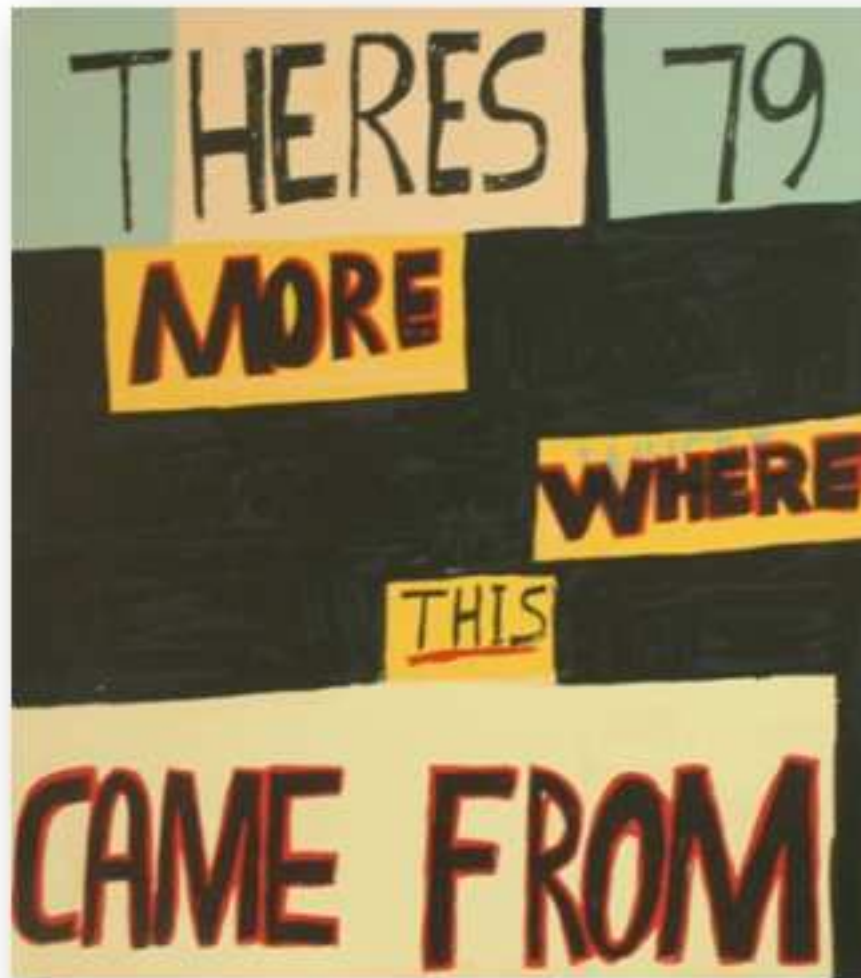 THERES 79
MORE
WHERE
THIS
CAME FROM